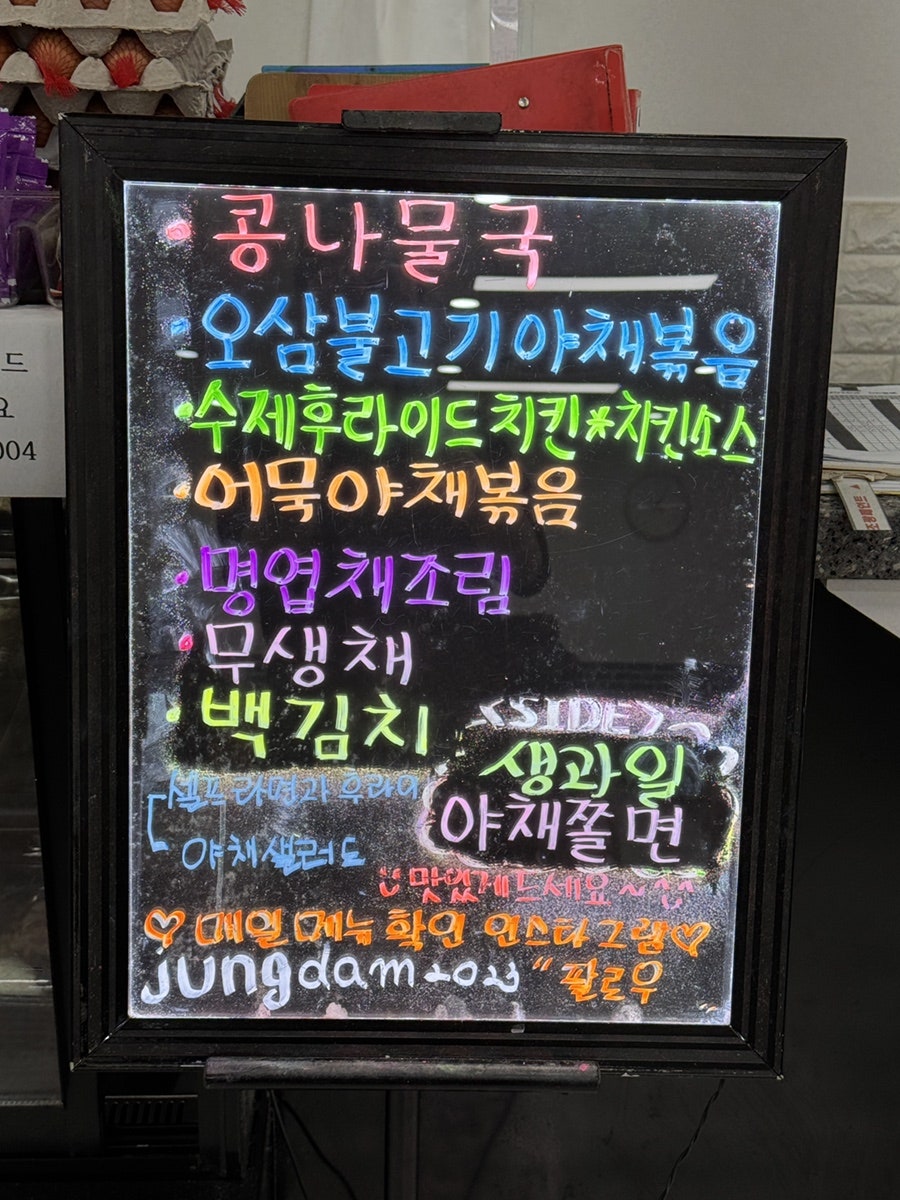 · 콩나물국
· 오삼불고기야채볶음
· 수제후라이드치킨*치킨소스
· 어묵야채볶음
· 명엽채조림
· 무생채
· 백김치
<SIDE>
생과일
야채쫄면
셀프라면과 후라이
야채샐러드
맛있게드세요~^^
♡ 매일 메뉴 확인 인스타그램♡
jungdam2023 "팔로우
드
요
004